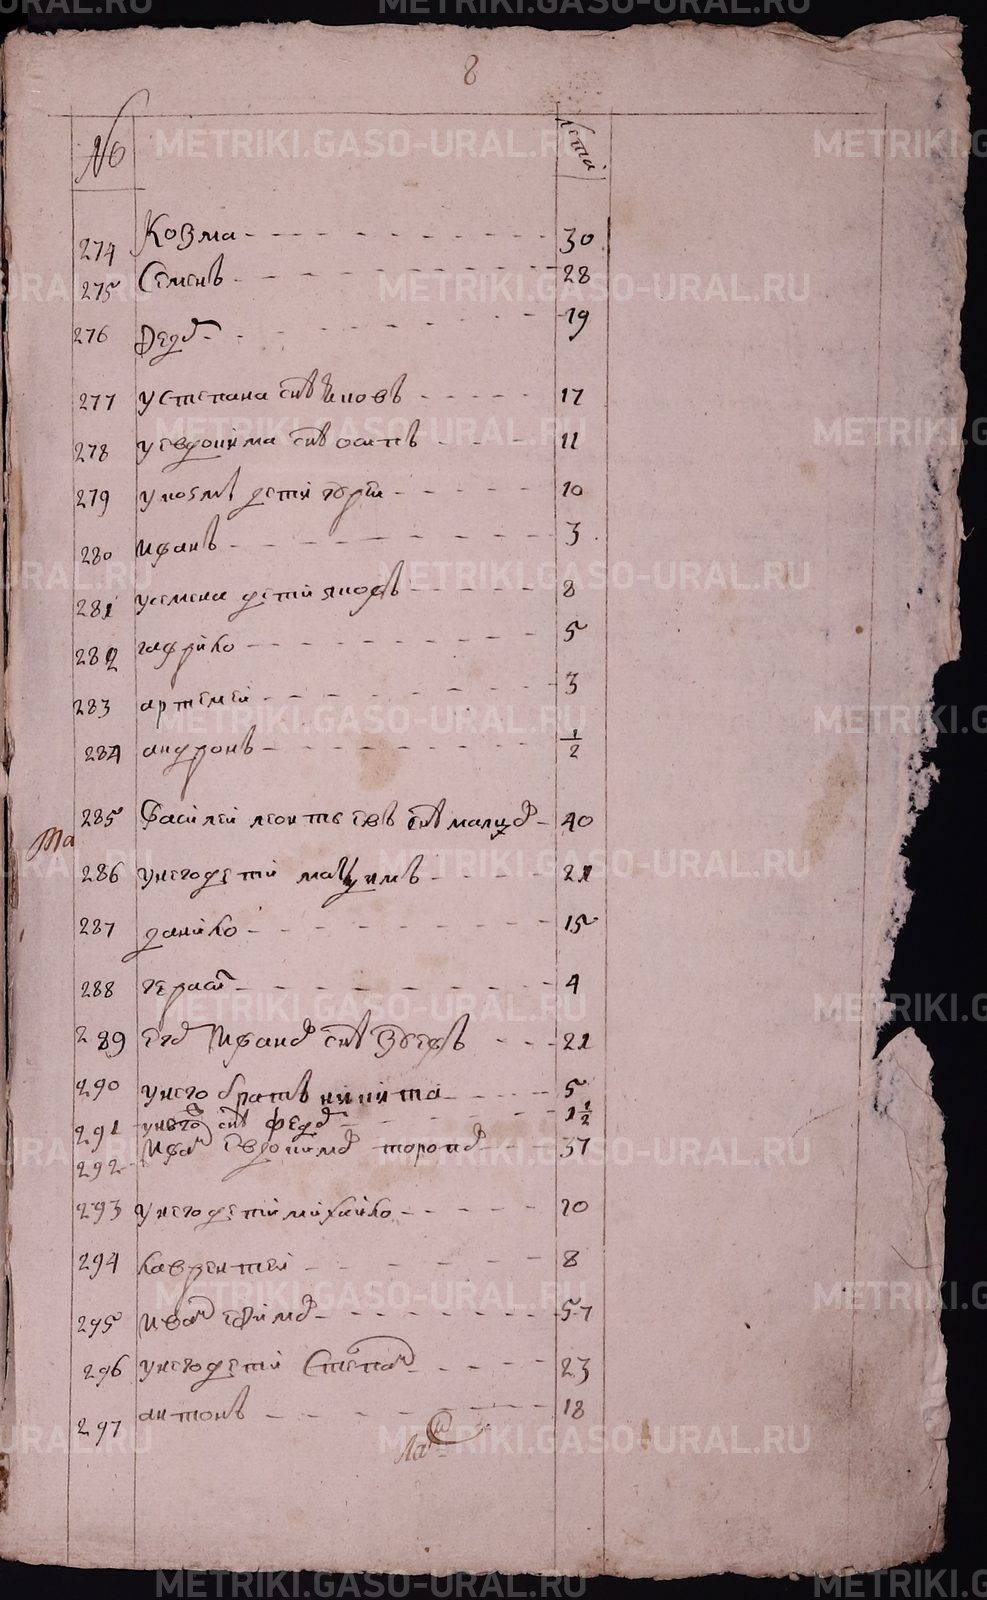 8
№ лета
274 Козма 30
275 Семенъ 28
276 Федо 19
277 у степана снъ яковъ 17
278 у евдокима снъ осипъ 11
279 у козмы дети 10
280 иванъ 3
281 у семена дети яковъ 8
282 гаврило 5
283 артемей 3
284 андронъ 1/2
285 василей леонтьевъ снъ 40
286 у него дети маѯимъ 21
287 данило 15
288 гераси 4
289 его ивано снъ 21
290 у него братъ никита 5
291 у него снъ федо 1 1/2
292 Ива евдокимо 37
293 у него дети михайло 10
294 лаврентей 8
295 Иван ефимо 57
296 у него дети Степан 23
297 антонъ 18